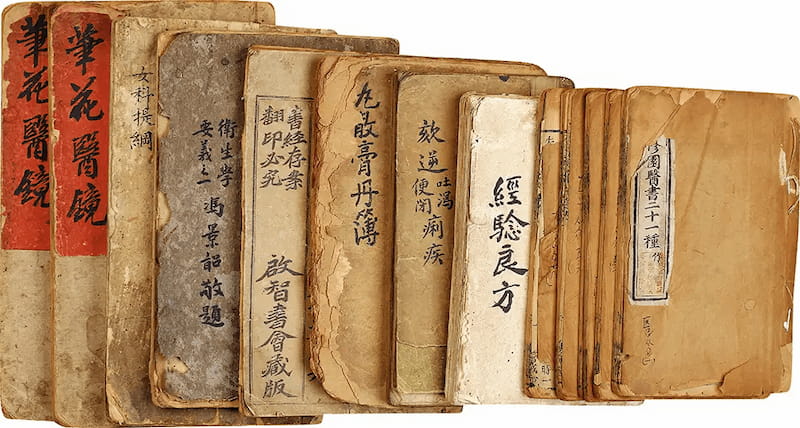 筆花醫鏡
筆花醫鏡
女科提綱
衛生學
要義之一
馮景韶敬題
書經存案
翻印必究
啟智書會藏版
丸散膏丹簿
欬逆吐瀉
便閉痢疾
經驗良方
修園醫書二十一種